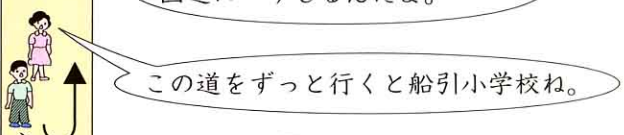 この道をずっと行くと船引小学校ね。